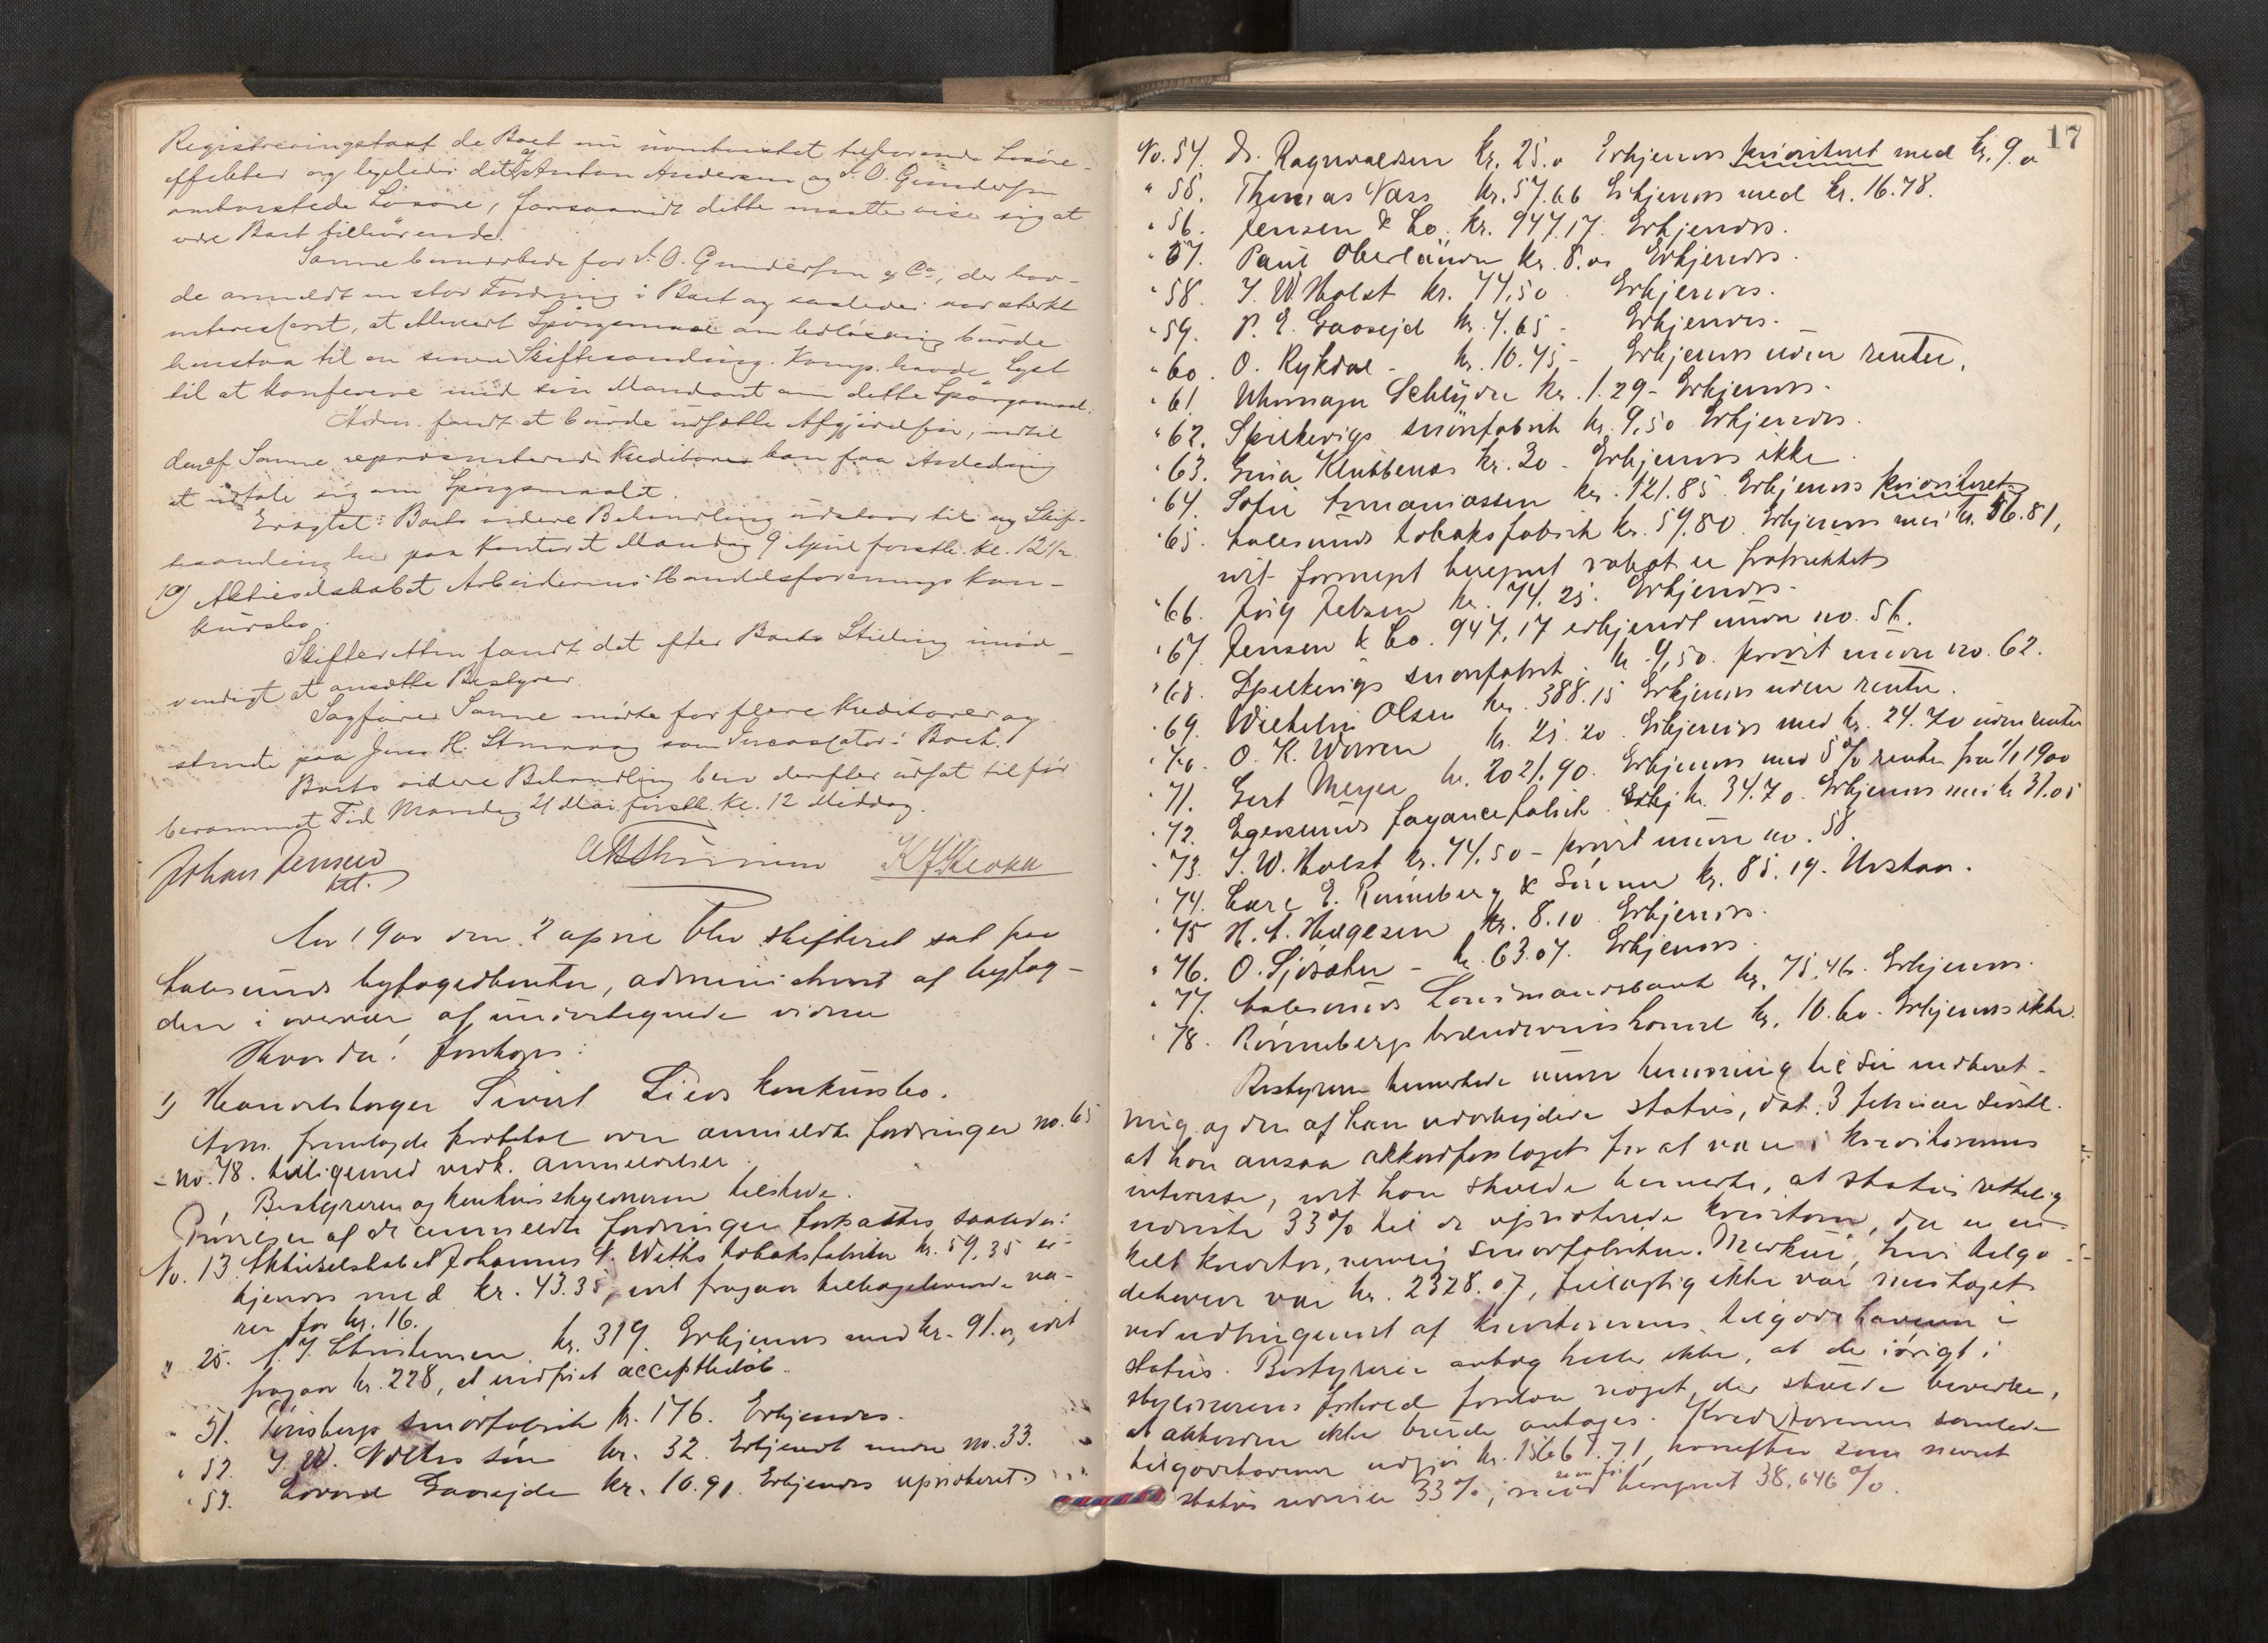 Registreringstakst de Boet nu iombeistet tilhørende Løsøre-
effekter og ligeledes det af Anton Andersen og S. O. Gundersen
ombeistede Løsøre, forsaavidt dette maatte vise sig at
være Boet tilhørende.
Sanne bemærkede for S. O. Gundersen & Co, der hav-
de anmeldt en stor Fordring i Boet og saaledes var stærkt
interesseret, at Spørgsmaal om burde
henstaa til en senere Skiftesamling. Komp. havde Lyst
til at konferere med sin Mandant om dette Spørgsmaal.
Adm. fandt at burde udsætte Afgjørelsen, indtil
de af Sanne repræsenterede Kreditorer kan faa Anledning
at udtale sig om Spørgsmaalet.
Eragtet: Boets videre Behandling udstaar til ny Skif-
tesamling her paa Kontoret Mandag 9 April førstk. Kl. 12 1/2.
19) Aktieselskabet Arbeidernes Handelsforenings Kon-
kursbo.
Skifteretten fandt det efter Boets Stilling unød-
vendigt at ansætte Bestyrer.
Sagfører Sanne mødte for flere Kreditorer og
stemte paa Jens H. som Incassator i Boet.
Boets videre Behandling blev derefter udsat til før
berammet Tid Mandag 21 Mai førstk. Kl. 12 Middag.
Johan Jensen
kst.
Aar 1900 den 2 april blev skifteret sat paa
Aalesunds byfogedkontor, administreret af byfog-
den i overvær af undertegnede vidner
Hvorda! foretoges:
1) Handelsborger Sivert Lieds konkursbo.
Adm. fremlagde protokol over anmeldte fordringer no. 65
- no. 78. tilligemed vedk. anmeldelser.
Bestyreren og konkursskyldneren tilstede.
Prøvelsen af de anmeldte fordringer fortsattes saaledes:
No. 13 Aktieselskabet Johannes N. Weths tobaksfabriker kr. 59,35 er-
kjendes med kr. 43.35, idet fragaar tilbageleverede va-
rer for kr. 16.
" 25. A. J. Christensen kr. 319. Erkjendes med kr. 91.00, idet
fragaar kr. 228, et indfriet acceptbeløb.
" 51. Tønsbergs smørfabrik kr. 176. Erkjendes.
" 52. J. W. Nolths søn kr. 32. Erkjendt under no. 33.
" 53. Edvard Gaasejde kr. 10.91. Erkjendes uprioriteret.
17
No. 54. D. Ragnvaldsen kr. 25.00 Erkjendes prioriteret med kr. 9.00
" 55. Thomas Nass kr. 57.66 Erkjendes med kr. 16.78.
" 56. Jensen & Co. kr. 947.17. Erkjendes.
" 57. Paul Oberländer kr. 8.00 Erkjendes.
" 58. J. W. Holst kr. 74,50 Erkjendes.
" 59. P. E. Gaasejd kr. 4.65 - Erkjendes.
" 60. O. Rykdal - kr. 10.45 - Erkjendes uden renter.
" 61. Uhrmager Schlyder kr. 1.29 - Erkjendes.
" 62. Spilkevigs snørefabrik kr. 9,50 Erkjendes.
" 63. Gina Klubbenæs kr. 30 - Erkjendes ikke.
" 64. Sofie Ananiassen kr. 121.85. Erkjendes prioriteret.
" 65. Aalesunds tobaksfabrik kr. 59.80 Erkjendes med kr. 56.81,
idet formegt beregnet rabat er fratrukket.
" 66. Jørg Jebsen kr. 74.25. Erkjendes.
" 67. Jensen & Co. 947,17 erkjendt under no. 56.
" 68. Spilkevigs snørefabrik kr. 9,50. prøvet under no. 62.
" 69. Wilhelm Olsen kr. 388.15 Erkjendes uden renter.
" 70. O. K. Warren kr. 25.20 Erkjendes med kr. 24.70 uden renter
" 71. Gert Meyer kr. 2021,90. Erkjendes med 5% renter fra 1/1 1900
" 72. Egersunds fayancefabrik Erkj kr. 34.70. Erkjendes med kr 31.05
" 73. J. W. Holst kr. 74,50 - prøvet under no. 58.
" 74. Carl E. Rønneberg & Sønner kr. 85.19. Udstaar.
" 75 H. A. Helgesen kr. 8.10. Erkjendes.
" 76. O. Sjøsæter - kr. 63.07. Erkjendes.
" 77. Aalesunds Landmandsbank kr. 75,46. Erkjendes.
" 78. Rønnebergs brændevinshandel kr. 10.60. Erkjendes ikke.
Bestyreren bemærkede under henvisning til sin indberet-
ning og den af ham udarbejdede status, dat. 3 februar sidstl.
at han ansaa akkordforslaget for at være i kreditorernes
interesse, idet han skulde bemærke, at status rettelig
udviste 33% til de uprioriterede kreditorer, da en en-
kelt kreditor, nemlig smørfabriken Merkur, hvis tilgo-
dehavende var kr. 2328.07, feilagtig ikke var medtaget
ved udregningen af kreditorernes tilgodehavende i
status. Bestyreren antog heller ikke, at der iøvrigt i
skyldnerens forhold forelaa noget, der skulde bevirke,
at akkorden ikke burde antages. Kreditorernes samlede
tilgodehavende udgjør kr. 15667.71, hvorefter som nævnt
status udviser 33%, imod beregnet 38,646 %.